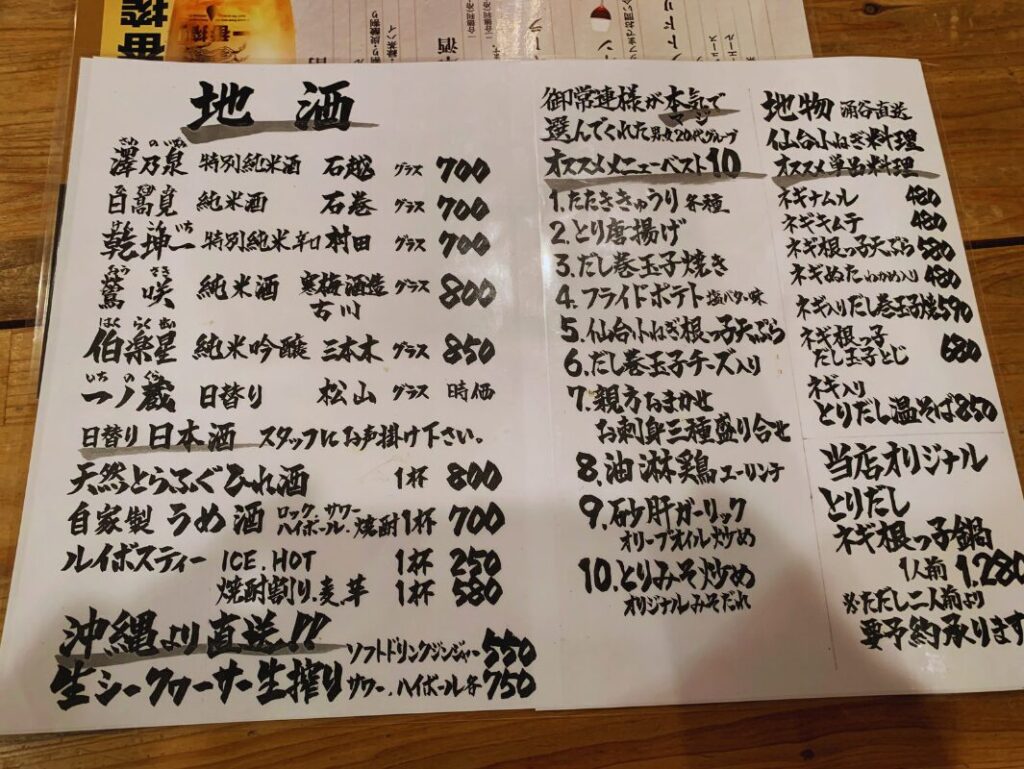 地酒
さわのいずみ
澤乃泉 特別純米酒 石越 グラス 700
日高見 純米酒 石巻 グラス 700
乾坤一 特別純米辛口 村田 グラス 700
鶯咲 純米酒 寒梅酒造 グラス 800
古川
はくらくせい
伯楽星 純米吟醸 三本木 グラス 850
いちのくら
一ノ蔵 日替り 松山 グラス 時価
日替り日本酒 スタッフにお声掛け下さい。
天然とらふぐひれ酒 1杯 800
自家製うめ酒 ロック、サワー
ハイボール、焼酎 1杯 700
ルイボスティー ICE.HOT 1杯 250
焼酎割り.麦.芋 1杯 580
沖縄より直送!!
生シークヮーサー生搾り
ソフトドリンクジンジャー 550
サワー.ハイボール各 750
御常連様が本気で
マジ
選んでくれた男女20代グループ
オススメメニューベスト10
1.たたききゅうり各種
2.とり唐揚げ
3.だし巻玉子焼き
4.フライドポテト塩バター味
5.仙台小ねぎ根っ子天ぷら
6.だし巻玉子チーズ入り
7.親方おまかせ
お刺身三種盛り合せ
8.油淋鶏ユーリンチ
9.砂肝ガーリック
オリーブオイル炒め
10.とりみそ炒め
オリジナルみそだれ
地物 涌谷直送
仙台小ねぎ料理
オススメ単品料理
ネギナムル 480
ネギキムチ 480
ネギ根っ子天ぷら 580
ネギぬたわかめ入り 480
ネギ入りだし巻玉子焼 590
ネギ根っ子
だし玉子とじ 680
ネギ入り
とりだし温そば 850
当店オリジナル
とりだし
ネギ根っ子鍋
1人前 1.280
※ただし二人前より
要予約承ります